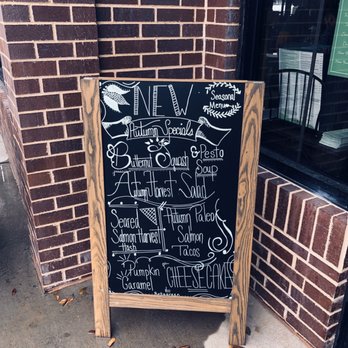 NEW
Seasonal
Menu
Autumn Specials
Butternut Squash
& Pesto
Soup
Autumn Harvest Salad
Seared
Salmon Harvest
Hash
Autumn Paleo
Salmon
Tacos
Pumpkin
Caramel
CHEESECAKES